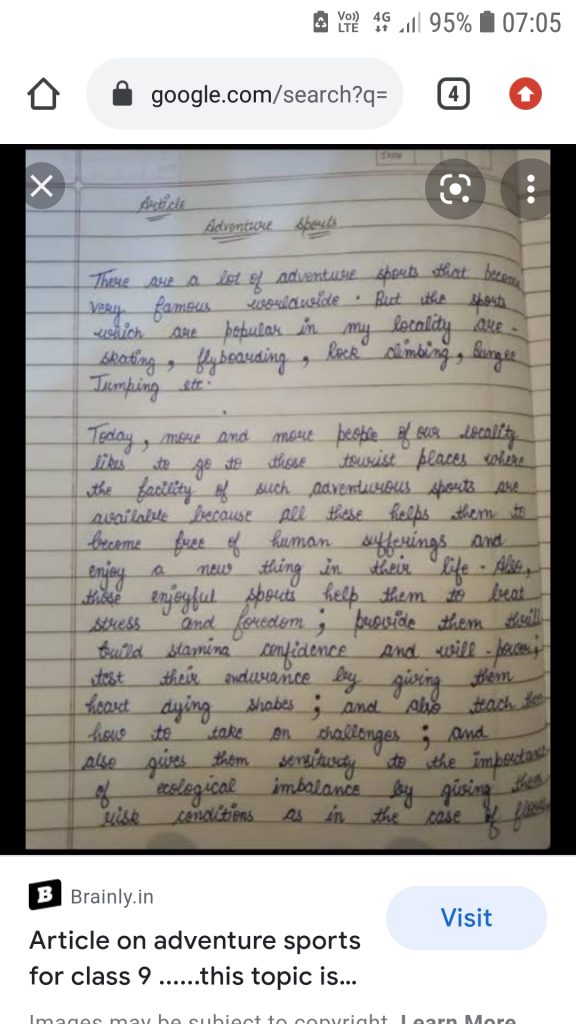 Vo)) LTE 4G 95% 07:05
google.com/search?q=
4
Date
Article
Adventure sports
There are a lot of adventure sports that become
very famous worldwide. But the sports
which are popular in my locality are -
skating, flyboarding, Rock climbing, Bungee
Jumping etc.
Today, more and more people of our locality
likes to go to those tourist places where
the facility of such adventurous sports are
available because all these helps them to
become free of human sufferings and
enjoy a new thing in their life. Also,
those enjoyful sports help them to beat
stress and foredom; provide them thrill
build stamina confidence and will-power;
test their endurance by giving them
heart dying shabes; and also teach
how to take on challenges; and
also gives them sensitivity to the importance
of ecological imbalance by giving them
risk conditions as in the case of
B Brainly.in
Visit
Article on adventure sports
for class 9 ......this topic is...
Images may be subject to copyright. Learn More